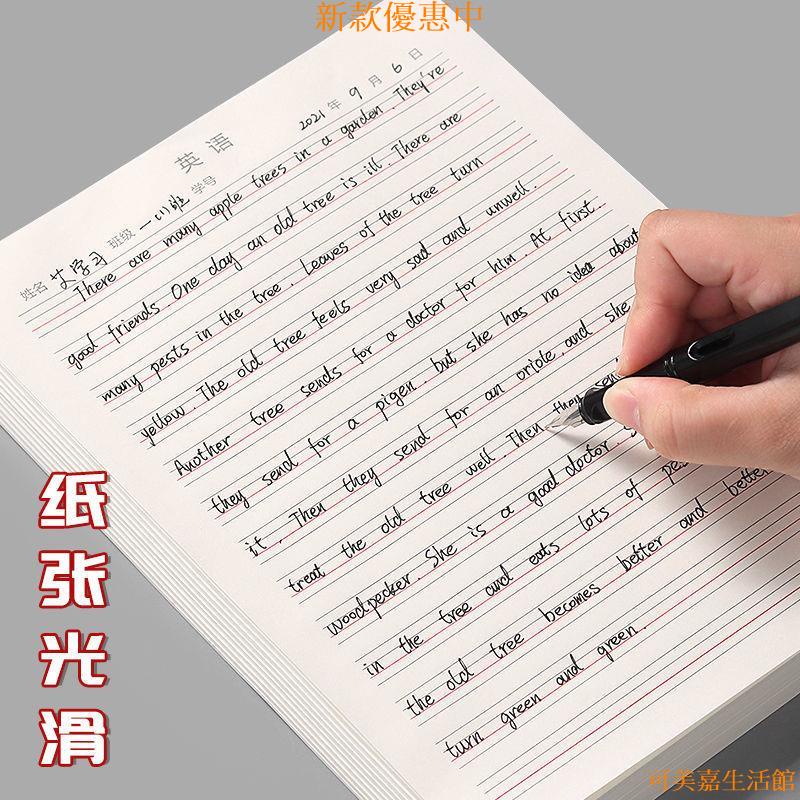 新款優惠中
2021年9月6日
英语
姓名 艾学习 班级 一(1)班 学号
There are many apple trees in a garden. They're
good friends. One day an old tree is ill. There are
many pests in the tree. Leaves of the tree turn
yellow. The old tree feels very sad and unwell.
Another tree sends for a doctor for him. At first.
they send for a pigen. but she has no idea about
it. Then they send for an oriole. and she
treat the old tree well. Then they sen
woodpecker. She is a good doctor.
in the tree and eats lots of pes
the old tree becomes better and better
turn green and green.
纸张光滑
可美嘉生活館